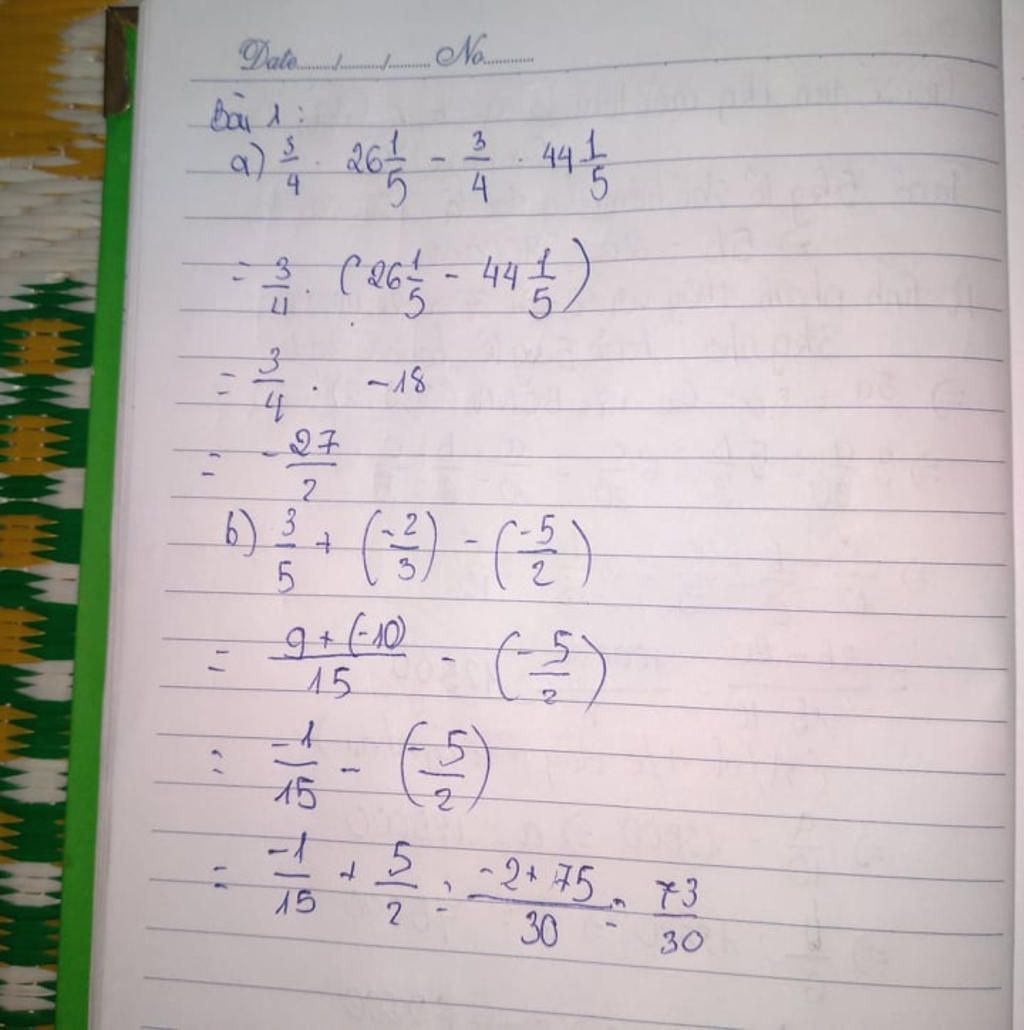 Date......../......../........ No..........
Bài 1:
a) 3/4 . 26 1/5 - 3/4 . 44 1/5
= 3/4 . (26 1/5 - 44 1/5)
= 3/4 . -18
= -27/2
b) 3/5 + (-2/3) - (-5/2)
= 9 + (-10)/15 - (-5/2)
= -1/15 - (-5/2)
= -1/15 + 5/2 = -2+75/30 = 73/30